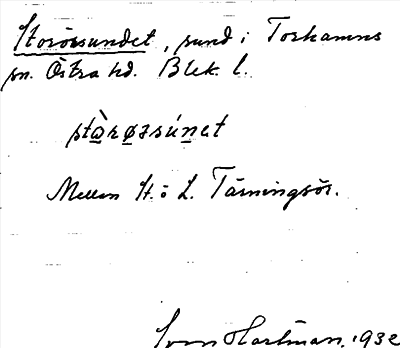 Storörsundet, sund i Torhamns
sn. Östra hd. Blek. l.
stàrøzsúnet
Mellan St. o L. Tärningsör.
Sven Hartman. 1932